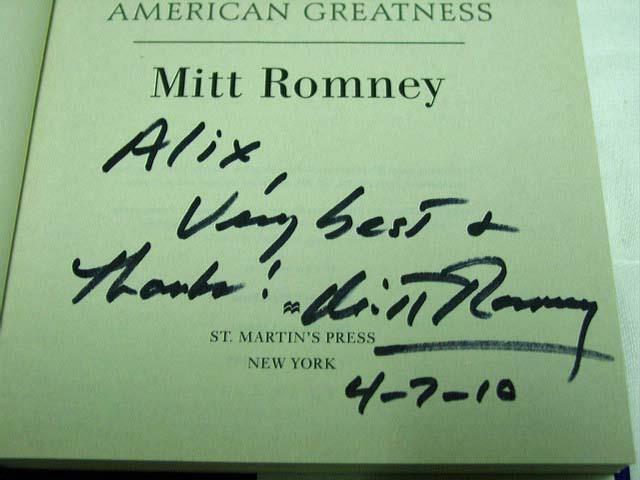 AMERICAN GREATNESS
Mitt Romney
Alix,
Very best &
Thanks!
Mitt Romney
ST. MARTIN'S PRESS
NEW YORK
4-7-10